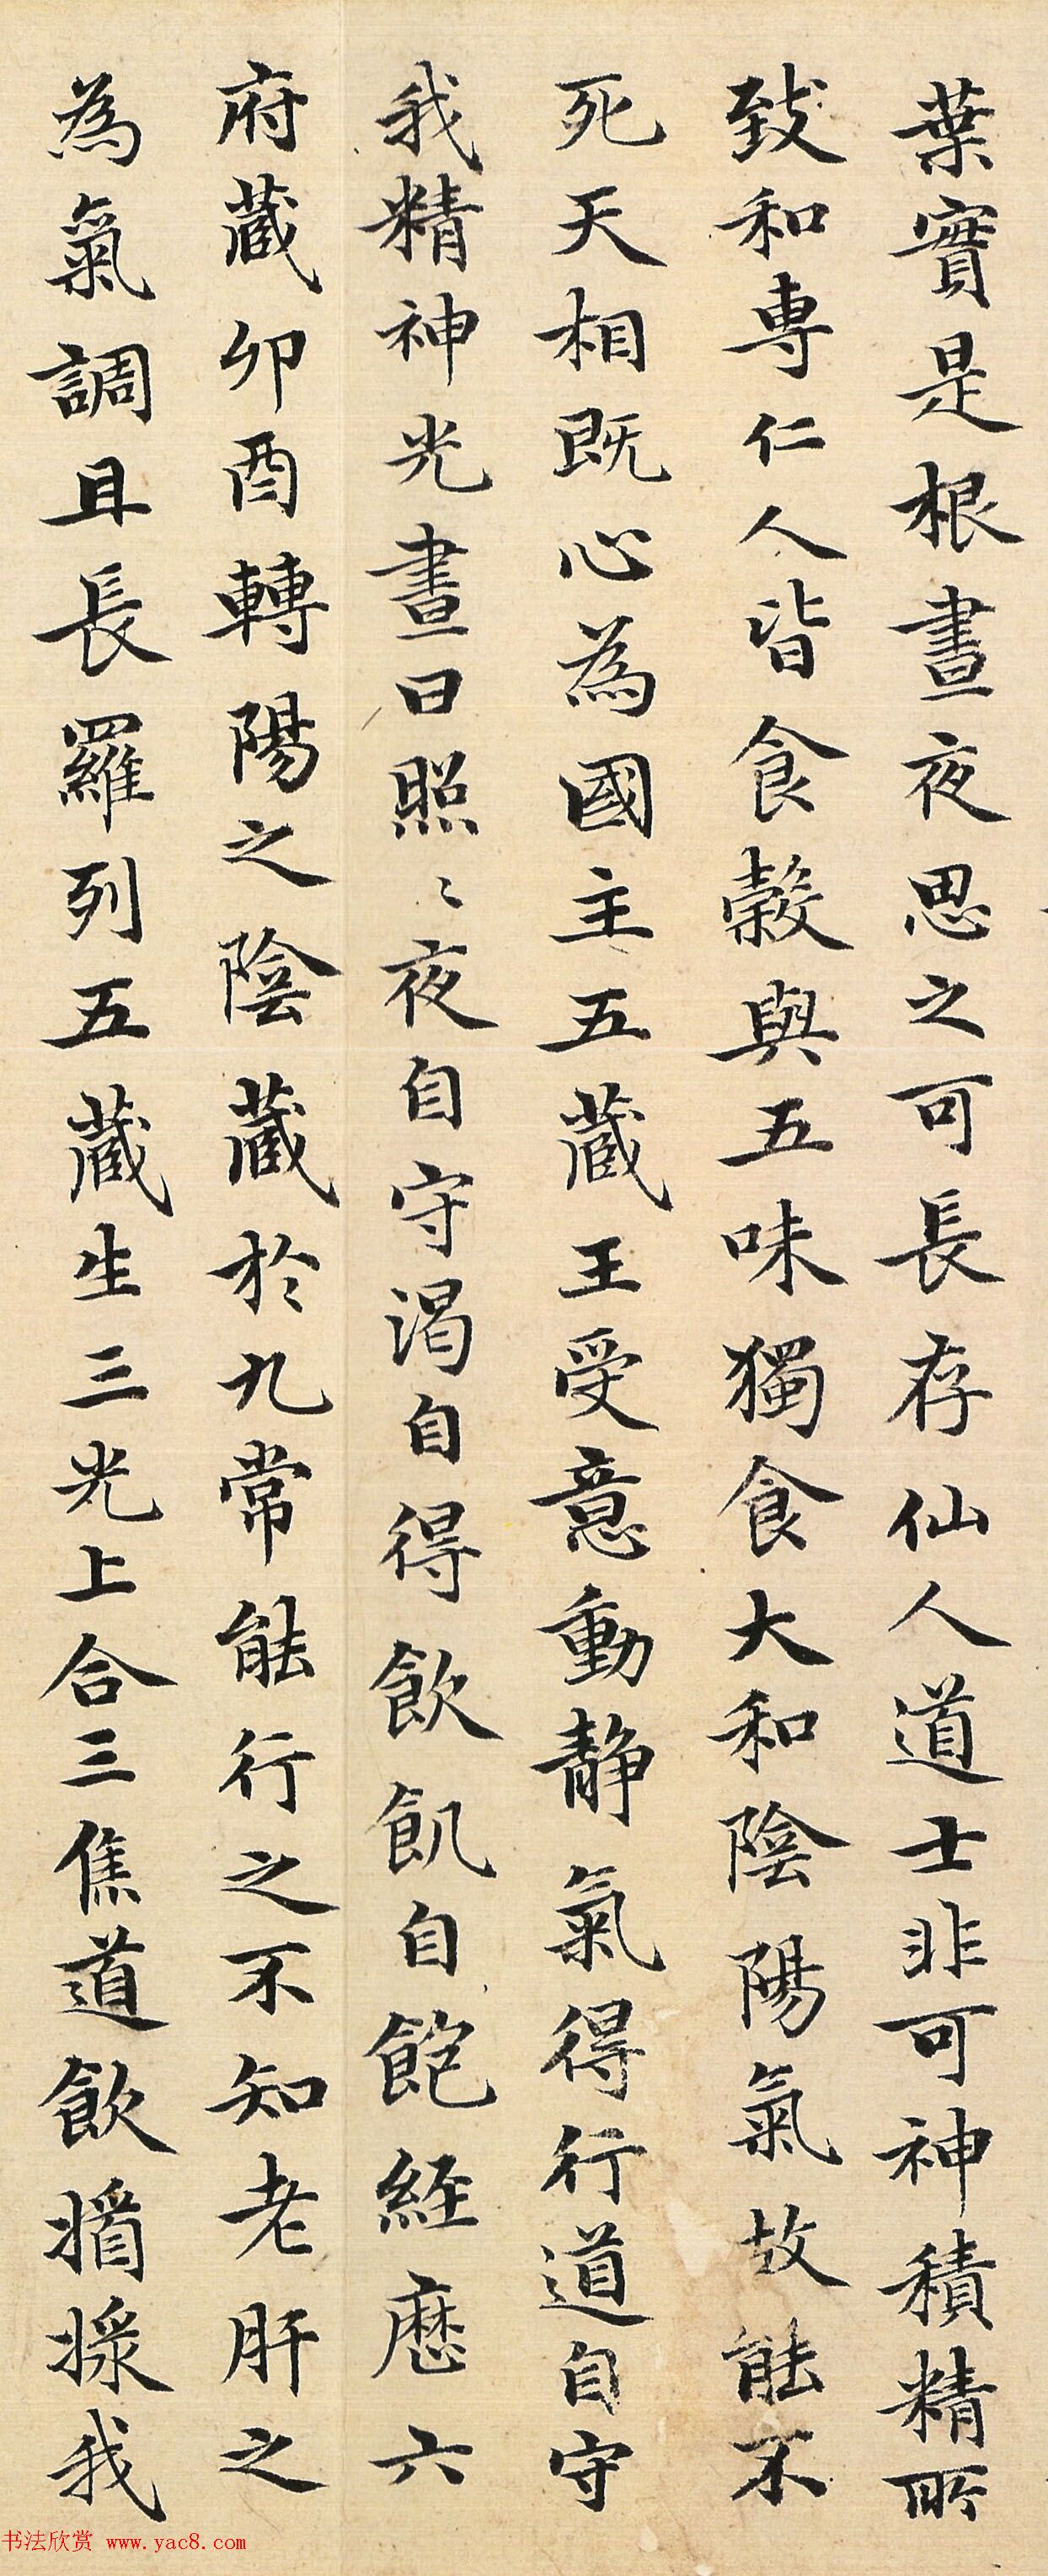 葉實是根晝夜思之可長存仙人道士非可神積精所
致和專仁人皆食穀與五味獨食大和陰陽氣故能不
死天相既心為國主五藏王受意動静氣得行道自守
我精神光晝日照〻夜自守渴自得飲飢自飽經歷六
府藏卯酉轉陽之陰藏於九常能行之不知老肝之
為氣調且長羅列五藏生三光上合三焦道飲我
书法欣赏 www.yac8.com